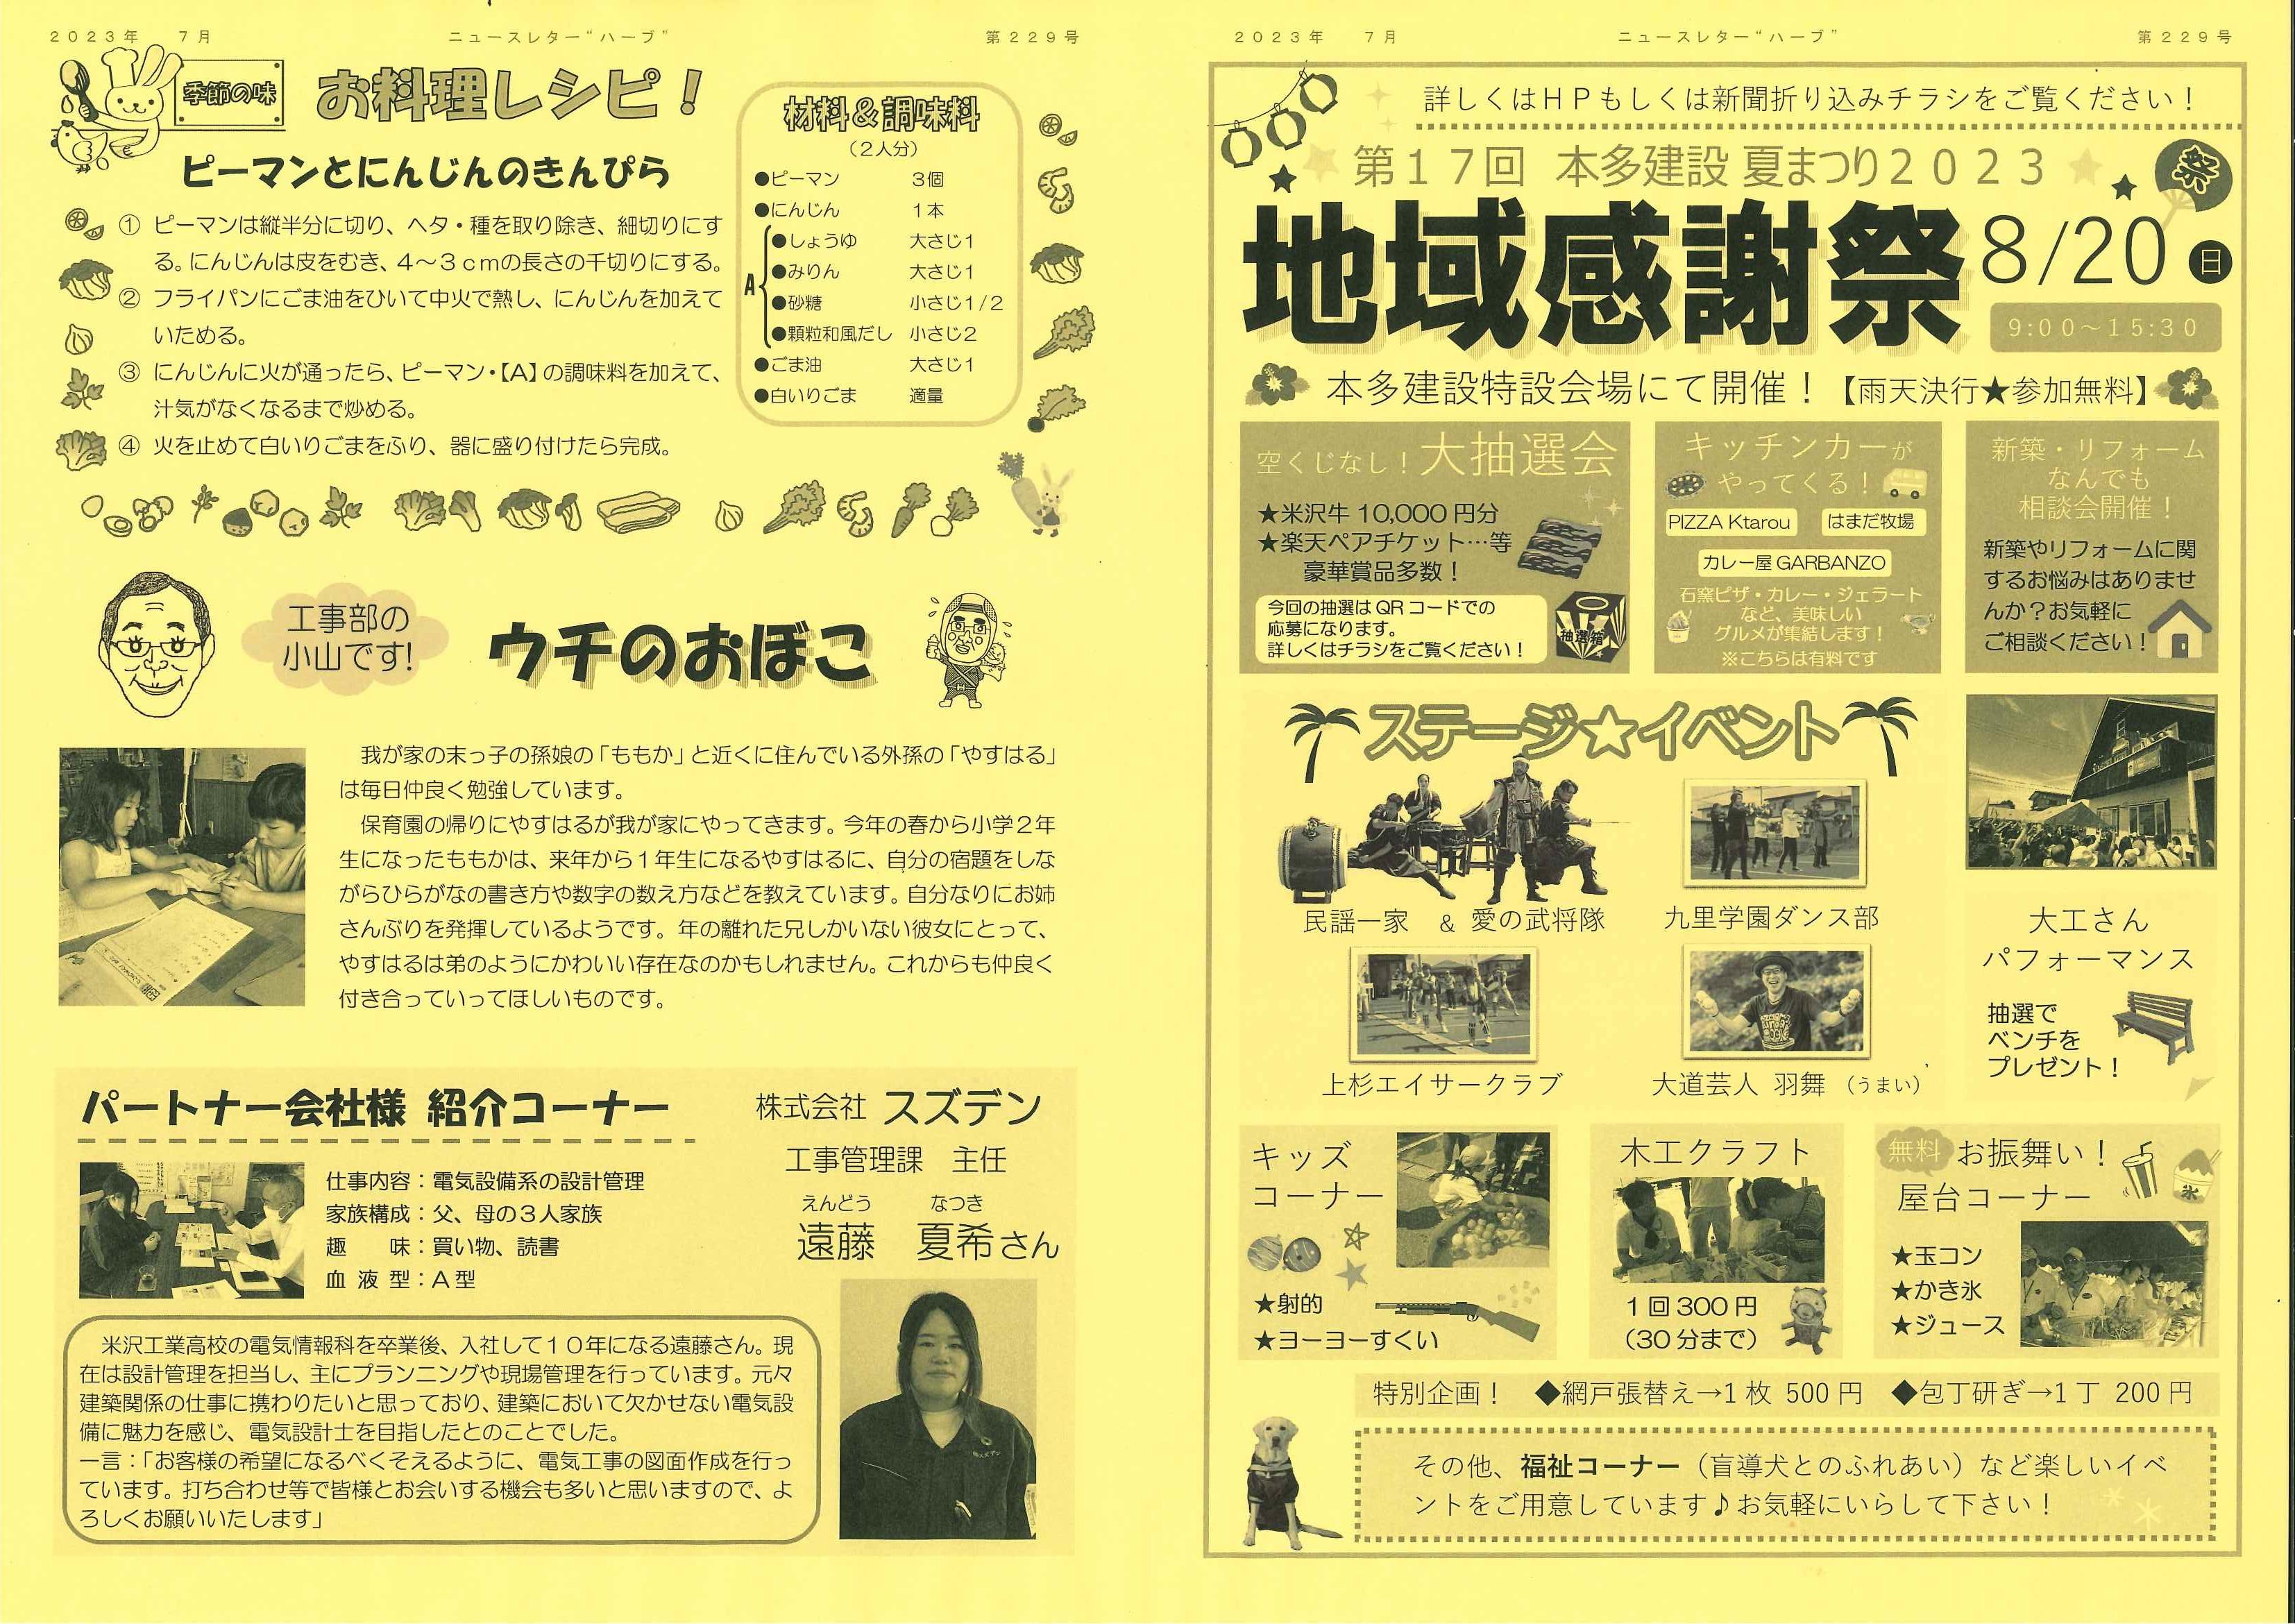 2023年　7月
ニュースレター“ハーブ”
第229号
季節の味
お料理レシピ！
ピーマンとにんじんのきんぴら
① ピーマンは縦半分に切り、ヘタ・種を取り除き、細切りにす
る。にんじんは皮をむき、4～3cmの長さの千切りにする。
② フライパンにごま油をひいて中火で熱し、にんじんを加えて
いためる。
③ にんじんに火が通ったら、ピーマン・【A】の調味料を加えて、
汁気がなくなるまで炒める。
④ 火を止めて白いりごまをふり、器に盛り付けたら完成。
材料＆調味料
（2人分）
●ピーマン　3個
●にんじん　1本
A
●しょうゆ　大さじ1
●みりん　大さじ1
●砂糖　小さじ1/2
●顆粒和風だし　小さじ2
●ごま油　大さじ1
●白いりごま　適量
工事部の
小山です!
ウチのおぼこ
我が家の末っ子の孫娘の「ももか」と近くに住んでいる外孫の「やすはる」
は毎日仲良く勉強しています。
保育園の帰りにやすはるが我が家にやってきます。今年の春から小学2年
生になったももかは、来年から1年生になるやすはるに、自分の宿題をしな
がらひらがなの書き方や数字の数え方などを教えています。自分なりにお姉
さんぶりを発揮しているようです。年の離れた兄しかいない彼女にとって、
やすはるは弟のようにかわいい存在なのかもしれません。これからも仲良く
付き合っていってほしいものです。
パートナー会社様 紹介コーナー
株式会社 スズデン
工事管理課　主任
えんどう　なつき
遠藤　夏希さん
仕事内容：電気設備系の設計管理
家族構成：父、母の3人家族
趣　　味：買い物、読書
血 液 型：A型
米沢工業高校の電気情報科を卒業後、入社して10年になる遠藤さん。現
在は設計管理を担当し、主にプランニングや現場管理を行っています。元々
建築関係の仕事に携わりたいと思っており、建築において欠かせない電気設
備に魅力を感じ、電気設計士を目指したとのことでした。
一言：「お客様の希望になるべくそえるように、電気工事の図面作成を行っ
ています。打ち合わせ等で皆様とお会いする機会も多いと思いますので、よ
ろしくお願いいたします」
2023年　7月
ニュースレター“ハーブ”
第229号
詳しくはHPもしくは新聞折り込みチラシをご覧ください！
第17回 本多建設 夏まつり2023
祭
地域感謝祭
8/20 日
9:00～15:30
本多建設特設会場にて開催！【雨天決行★参加無料】
空くじなし！大抽選会
★米沢牛 10,000 円分
★楽天ペアチケット…等
豪華賞品多数！
今回の抽選は QR コードでの
応募になります。
詳しくはチラシをご覧ください！
抽選箱
キッチンカーが
やってくる！
PIZZA Ktarou
はまだ牧場
カレー屋 GARBANZO
石窯ピザ・カレー・ジェラート
など、美味しい
グルメが集結します！
※こちらは有料です
新築・リフォーム
なんでも
相談会開催！
新築やリフォームに関
するお悩みはありませ
んか？お気軽に
ご相談ください！
ステージ☆イベント
民謡一家　＆ 愛の武将隊
九里学園ダンス部
上杉エイサークラブ
大道芸人 羽舞（うまい）
大工さん
パフォーマンス
抽選で
ベンチを
プレゼント！
キッズ
コーナー
★射的
★ヨーヨーすくい
木工クラフト
1回300円
（30分まで）
無料 お振舞い！
屋台コーナー
氷
★玉コン
★かき氷
★ジュース
特別企画！　◆網戸張替え→1枚 500円　◆包丁研ぎ→1丁 200円
その他、福祉コーナー（盲導犬とのふれあい）など楽しいイベ
ントをご用意しています♪お気軽にいらして下さい！